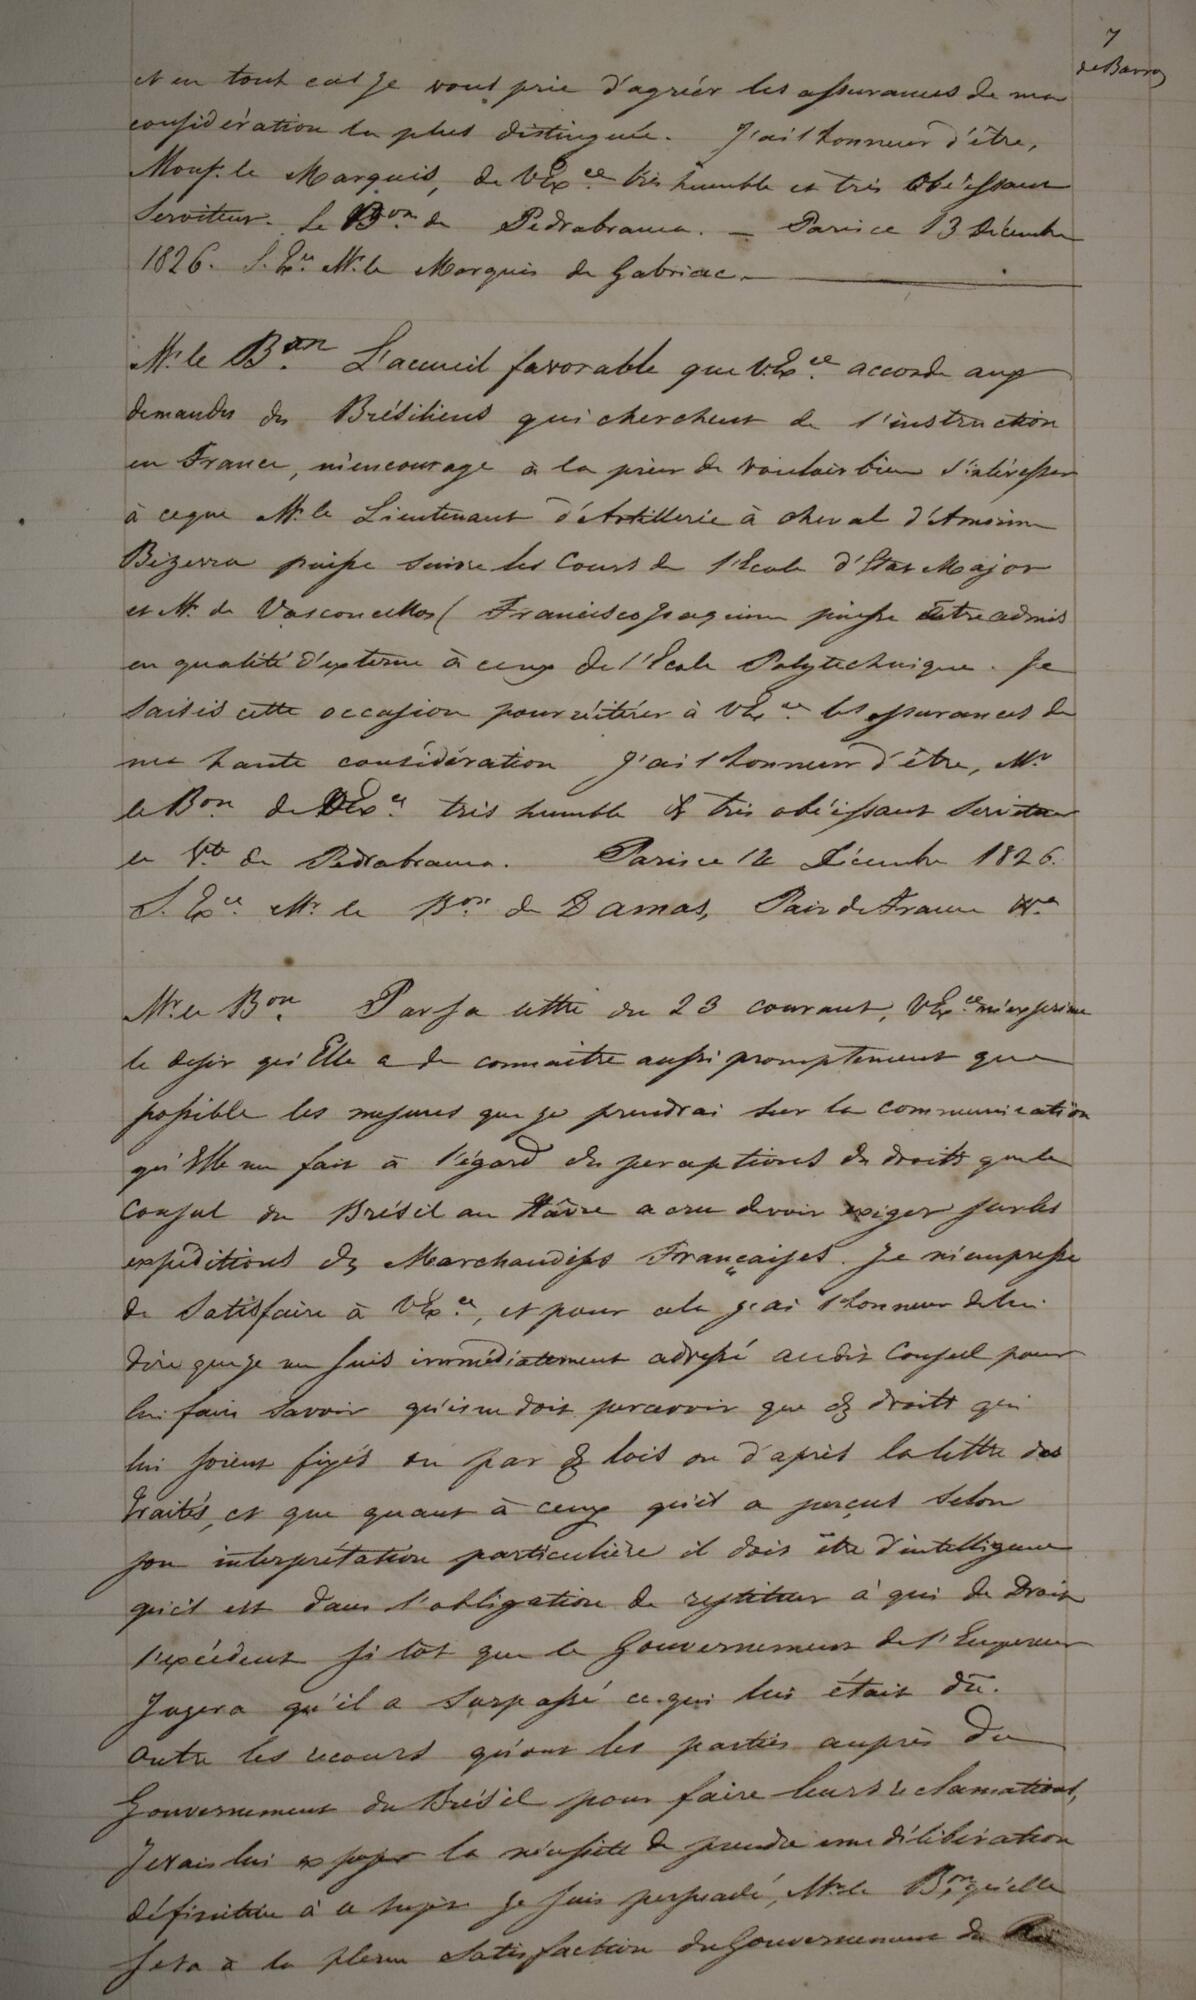 7
de Barros
et en tout cas je vous prie d'agréér les assurances de ma
considération la plus distinguée. J'ai l'honneur d'être,
Monsr. le Marquis, de V.Exce. très humble et très obéissant
Serviteur. Le Bon. de Pedrabranca. — Paris ce 13 Décembre
1826. S. Exce. Mr. le Marquis de Gabriac.
Mr. le Bon. L'accueil favorable que V.Exce. accorde aux
demandes des Brésiliens qui cherchent de l'instruction
en France, m'encourage à la prier de vouloir bien s'intéresser
à ce que Mr. le Lieutenant d'Artillerie à cheval d'Amorim
Bezerra puisse suivre les Cours de l'Ecole d'Etat Major
et Mr. de Vasconcellos (Francisco Joaquim puisse être admis
en qualité d'externe à ceux de l'Ecole Polytechnique. Je
saisis cette occasion pour réitérér à V.Exce. les assurances de
ma haute considération J'ai l'honneur d'être, Mr
le Bon. de V.Exce. très humble & très obéissant serviteur
le Vte. de Pedrabranca. Paris ce 12 Décembre 1826.
S. Exce. Mr. le Bon. de Damas, Pair de France &ca.
Mr. le Bon. Par sa lettre du 23 courant, V.Exce. m'exprime
le desir qu'Elle a de connaître aussi promptement que
possible les mesures que je prendrai sur la communication
qu'Elle me fait à l'égard des perceptions de droits que le
Consul du Brésil au Hâvre a cru devoir exiger sur les
expéditions des Marchandises Françaises. Je m'empresse
de Satisfaire à V.Exce., et pour cela j'ai l'honneur de lui
dire que je me suis immédiatement adressé audit Consul pour
lui faire savoir qu'il ne doit percevoir que des droits qui
lui soient fixés ou par des lois ou d'après la lettre des
traités, et que quant à ceux qu'il a perçus selon
son interprétation particulière il doit être d'intelligence
qu'il est dans l'obligation de restituer à qui de Droit
l'excédent si tôt que le Gouvernement de l'Empereur
Jugera qu'il a surpassé ce qui lui était dû.
Outre les recours qu'ont les parties auprès du
Gouvernement du Brésil pour faire leurs réclamations,
Je vais lui exposer la nécessité de prendre une délibération
définitive à ce sujet. Je suis persuadé, Mr. le Bon, qu'elle
sera à la pleine satisfaction du Gouvernement du Roi